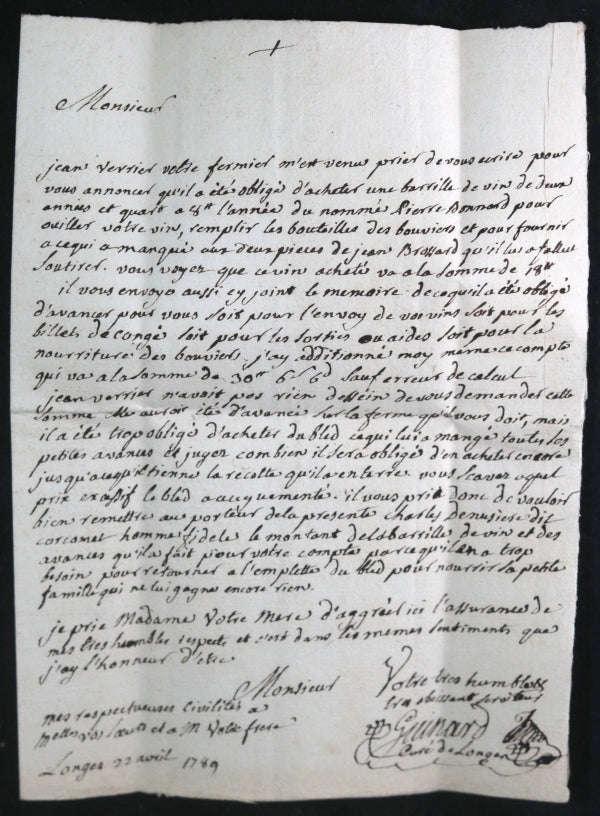 +
Monsieur
jean verrier votre fermier m'est venu prier de vous ecrire pour
vous annoncer qu'il a été obligé d'acheter une barrille de vin de deux
années et quart a 8tt l'année du nommé Pierre Bonnard pour
ouiller votre vin, remplir les bouteilles des bouviers et pour fournir
a ce qui a manqué aux deux pieces de jean Brossard qu'il lui a fallut
soutirer. vous voyez que ce vin acheté va a la somme de 18tt
il vous envoye aussi cy joint le memoire de ce qu'il a été obligé
d'avancer pour vous soit pour l'envoy de vos vins soit pour les
billets de congé soit pour les sorties ou aides soit pour la
nourriture des bouviers. j'ay additionné moy meme ce compte
qui va a la somme de 30tt 6s 6d sauf erreur de calcul
jean verrier n'avoit pas rien dessein de vous demander cette
somme auroit été d'avance sur la ferme qu'il vous doit, mais
il a été trop obligé d'acheter du bled ce qui lui a mangé toutes ses
petites avances et jugez combien il sera obligé d'en acheter encore
jusqu'a ce qu'il tienne la recolte qu'il a en terre. vous scavez a quel
prix excessif le bled a augmenté. il vous prie donc de vouloir
bien remettre au porteur de la presente Charles Denusiere dit
corcomet homme fidele le montant de la barrille de vin et des
avances qu'il a fait pour votre compte parce qu'il en a trop
besoin pour retourner a l'emplette du bled pour nourrir sa petite
famille qui ne lui gagne encore rien.
je prie Madame Votre Mere d'aggréer ici l'assurance de
mes tres humbles respects et c'est dans les memes sentiments que
j'ay l'honneur d'etre
Monsieur
Votre tres humble et
tres obeissant serviteur
mes respectueuses civilités a
Melles vos soeurs et a M votre frere
Guinard
Curé de Longes
Longes 22 avril 1789